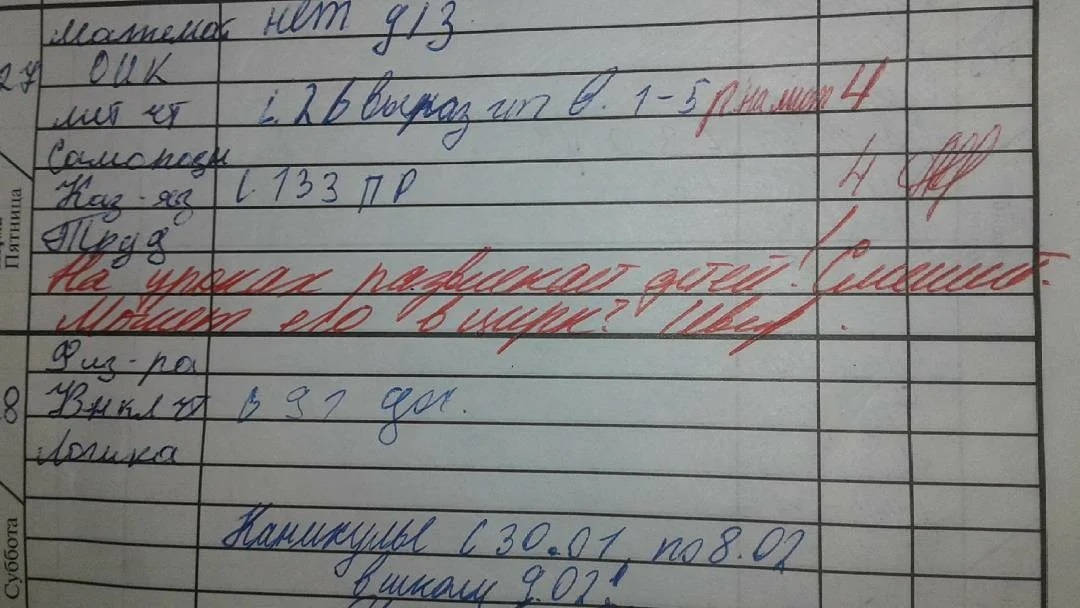 математ нет д/з
27 ОИК
лит чт с. 26 выраз чт в. 1-5 р на лист 4
Самопозн
Каз-яз с 133 ПР 4
Пятница
Труд
На уроках развлекает детей! Смешит.
Может его в цирк?
Физ-ра
8 Внкл чт в 91 дч.
Логика
Суббота
Каникулы с 30.01 по 8.02
в школу 9.02!